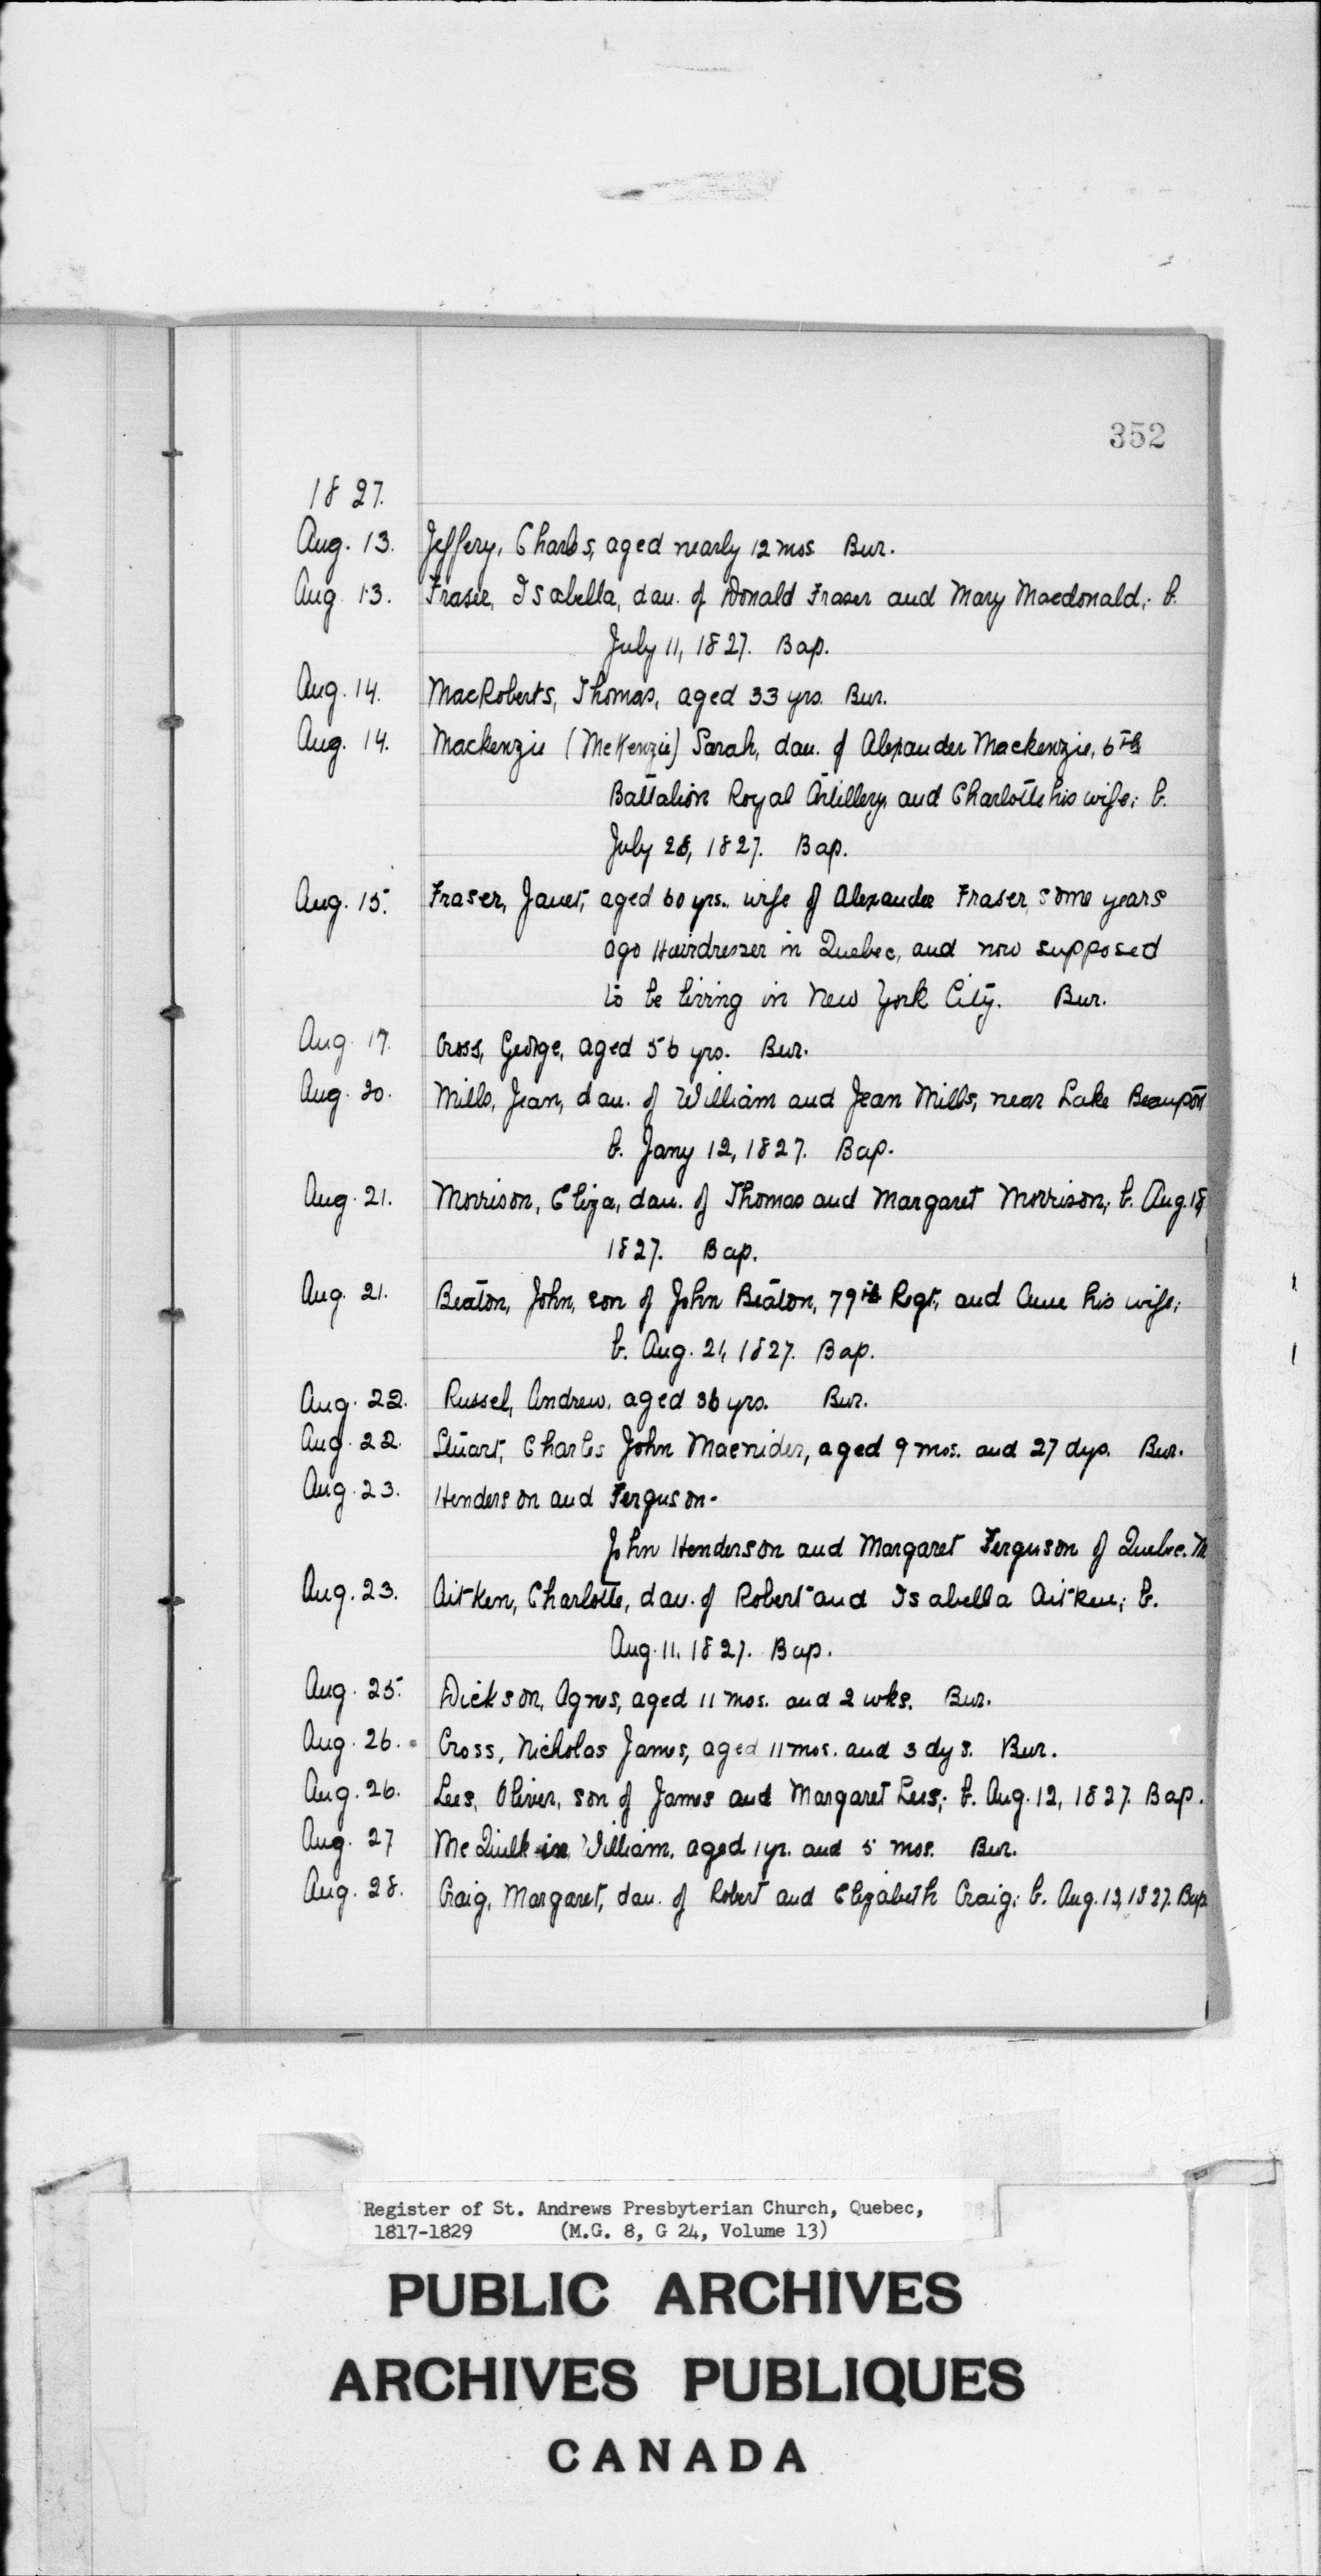 352
1827.
Aug. 13. Jeffery, Charles, aged nearly 12 mos. Bur.
Aug. 13. Fraser, Isabella, dau. of Donald Fraser and Mary Macdonald; b.
July 11, 1827. Bap.
Aug. 14. MacRoberts, Thomas, aged 33 yrs. Bur.
Aug. 14. Mackenzie (McKenzie) Sarah, dau. of Alexander Mackenzie, 6th
Battalion Royal Artillery and Charlotte his wife; b.
July 28, 1827. Bap.
Aug. 15. Fraser, Janet, aged 60 yrs., wife of Alexander Fraser, some years
ago Hairdresser in Quebec, and now supposed
to be living in New York City. Bur.
Aug. 17. Cross, George, aged 56 yrs. Bur.
Aug. 20. Mills, Jean, dau. of William and Jean Mills, near Lake Beauport
b. Jany 12, 1827. Bap.
Aug. 21. Morrison, Eliza, dau. of Thomas and Margaret Morrison; b. Aug. 18,
1827. Bap.
Aug. 21. Beaton, John, son of John Beaton, 79th Regt, and Anne his wife;
b. Aug. 21, 1827. Bap.
Aug. 22. Russel, Andrew, aged 36 yrs. Bur.
Aug. 22. Stuart, Charles John Macnider, aged 9 mos. and 27 dys. Bur.
Aug. 23. Henderson and Ferguson -
John Henderson and Margaret Ferguson of Quebec. M
Aug. 23. Aitken, Charlotte, dau. of Robert and Isabella Aitken; b.
Aug. 11, 1827. Bap.
Aug. 25. Dickson, Agnes, aged 11 mos. and 2 wks. Bur.
Aug. 26. Cross, Nicholas James, aged 11 mos. and 3 dys. Bur.
Aug. 26. Lees, Oliver, son of James and Margaret Lees; b. Aug. 12, 1827. Bap.
Aug. 27 McQuilkin, William, aged 1 yr. and 5 mos. Bur.
Aug. 28. Craig, Margaret, dau. of Robert and Elizabeth Craig; b. Aug. 12, 1827. Bap
Register of St. Andrews Presbyterian Church, Quebec,
1817-1829 (M.G. 8, G 24, Volume 13)
PUBLIC ARCHIVES
ARCHIVES PUBLIQUES
CANADA